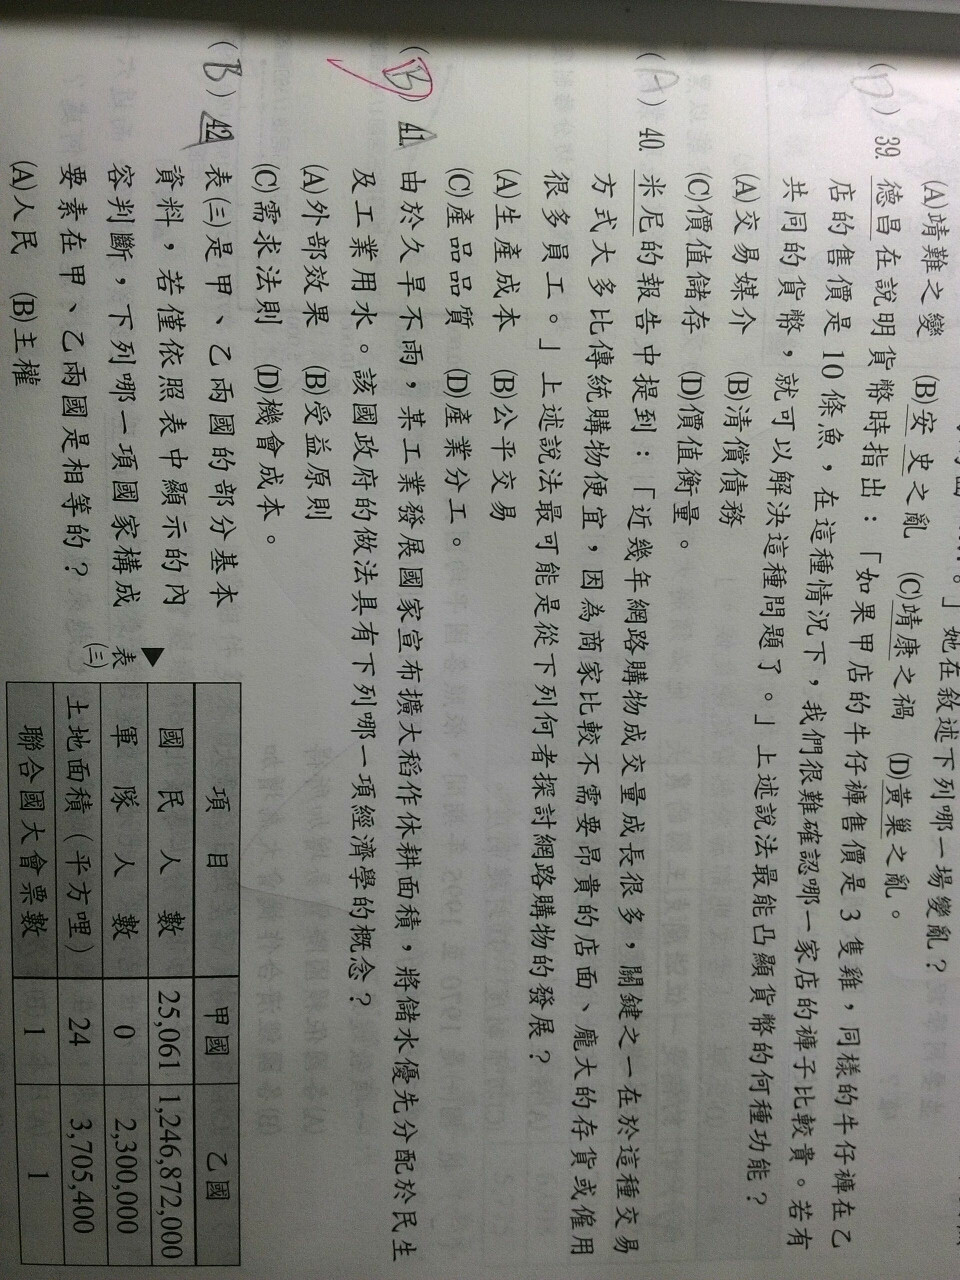 」她在敘述下列哪一場變亂？
(A)靖難之變　(B)安史之亂　(C)靖康之禍　(D)黃巢之亂。
(D) 39. 德昌在說明貨幣時指出：「如果甲店的牛仔褲售價是 3 隻雞，同樣的牛仔褲在乙
店的售價是 10 條魚，在這種情況下，我們很難確認哪一家店的褲子比較貴。若有
共同的貨幣，就可以解決這種問題了。」上述說法最能凸顯貨幣的何種功能？
(A)交易媒介　(B)清償債務
(C)價值儲存　(D)價值衡量。
(A) 40. 米尼的報告中提到：「近幾年網路購物成交量成長很多，關鍵之一在於這種交易
方式大多比傳統購物便宜，因為商家比較不需要昂貴的店面、龐大的存貨或僱用
很多員工。」上述說法最可能是從下列何者探討網路購物的發展？
(A)生產成本　(B)公平交易
(C)產品品質　(D)產業分工。
(B) 41. 由於久旱不雨，某工業發展國家宣布擴大稻作休耕面積，將儲水優先分配於民生
及工業用水。該國政府的做法具有下列哪一項經濟學的概念？
(A)外部效果　(B)受益原則
(C)需求法則　(D)機會成本。
(B) 42. 表(三)是甲、乙兩國的部分基本
資料，若僅依照表中顯示的內
容判斷，下列哪一項國家構成
要素在甲、乙兩國是相等的？
(A)人民　(B)主權
▶表(三)
項目　甲國　乙國
國民人數　25,061　1,246,872,000
軍隊人數　0　2,300,000
土地面積（平方哩）　24　3,705,400
聯合國大會票數　1　1